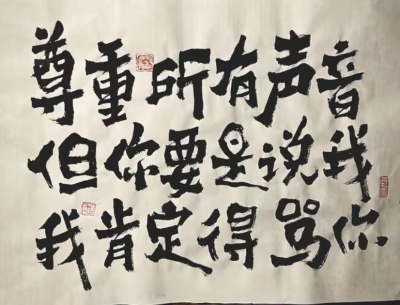 尊重所有声音
但你要是说我
我肯定得骂你